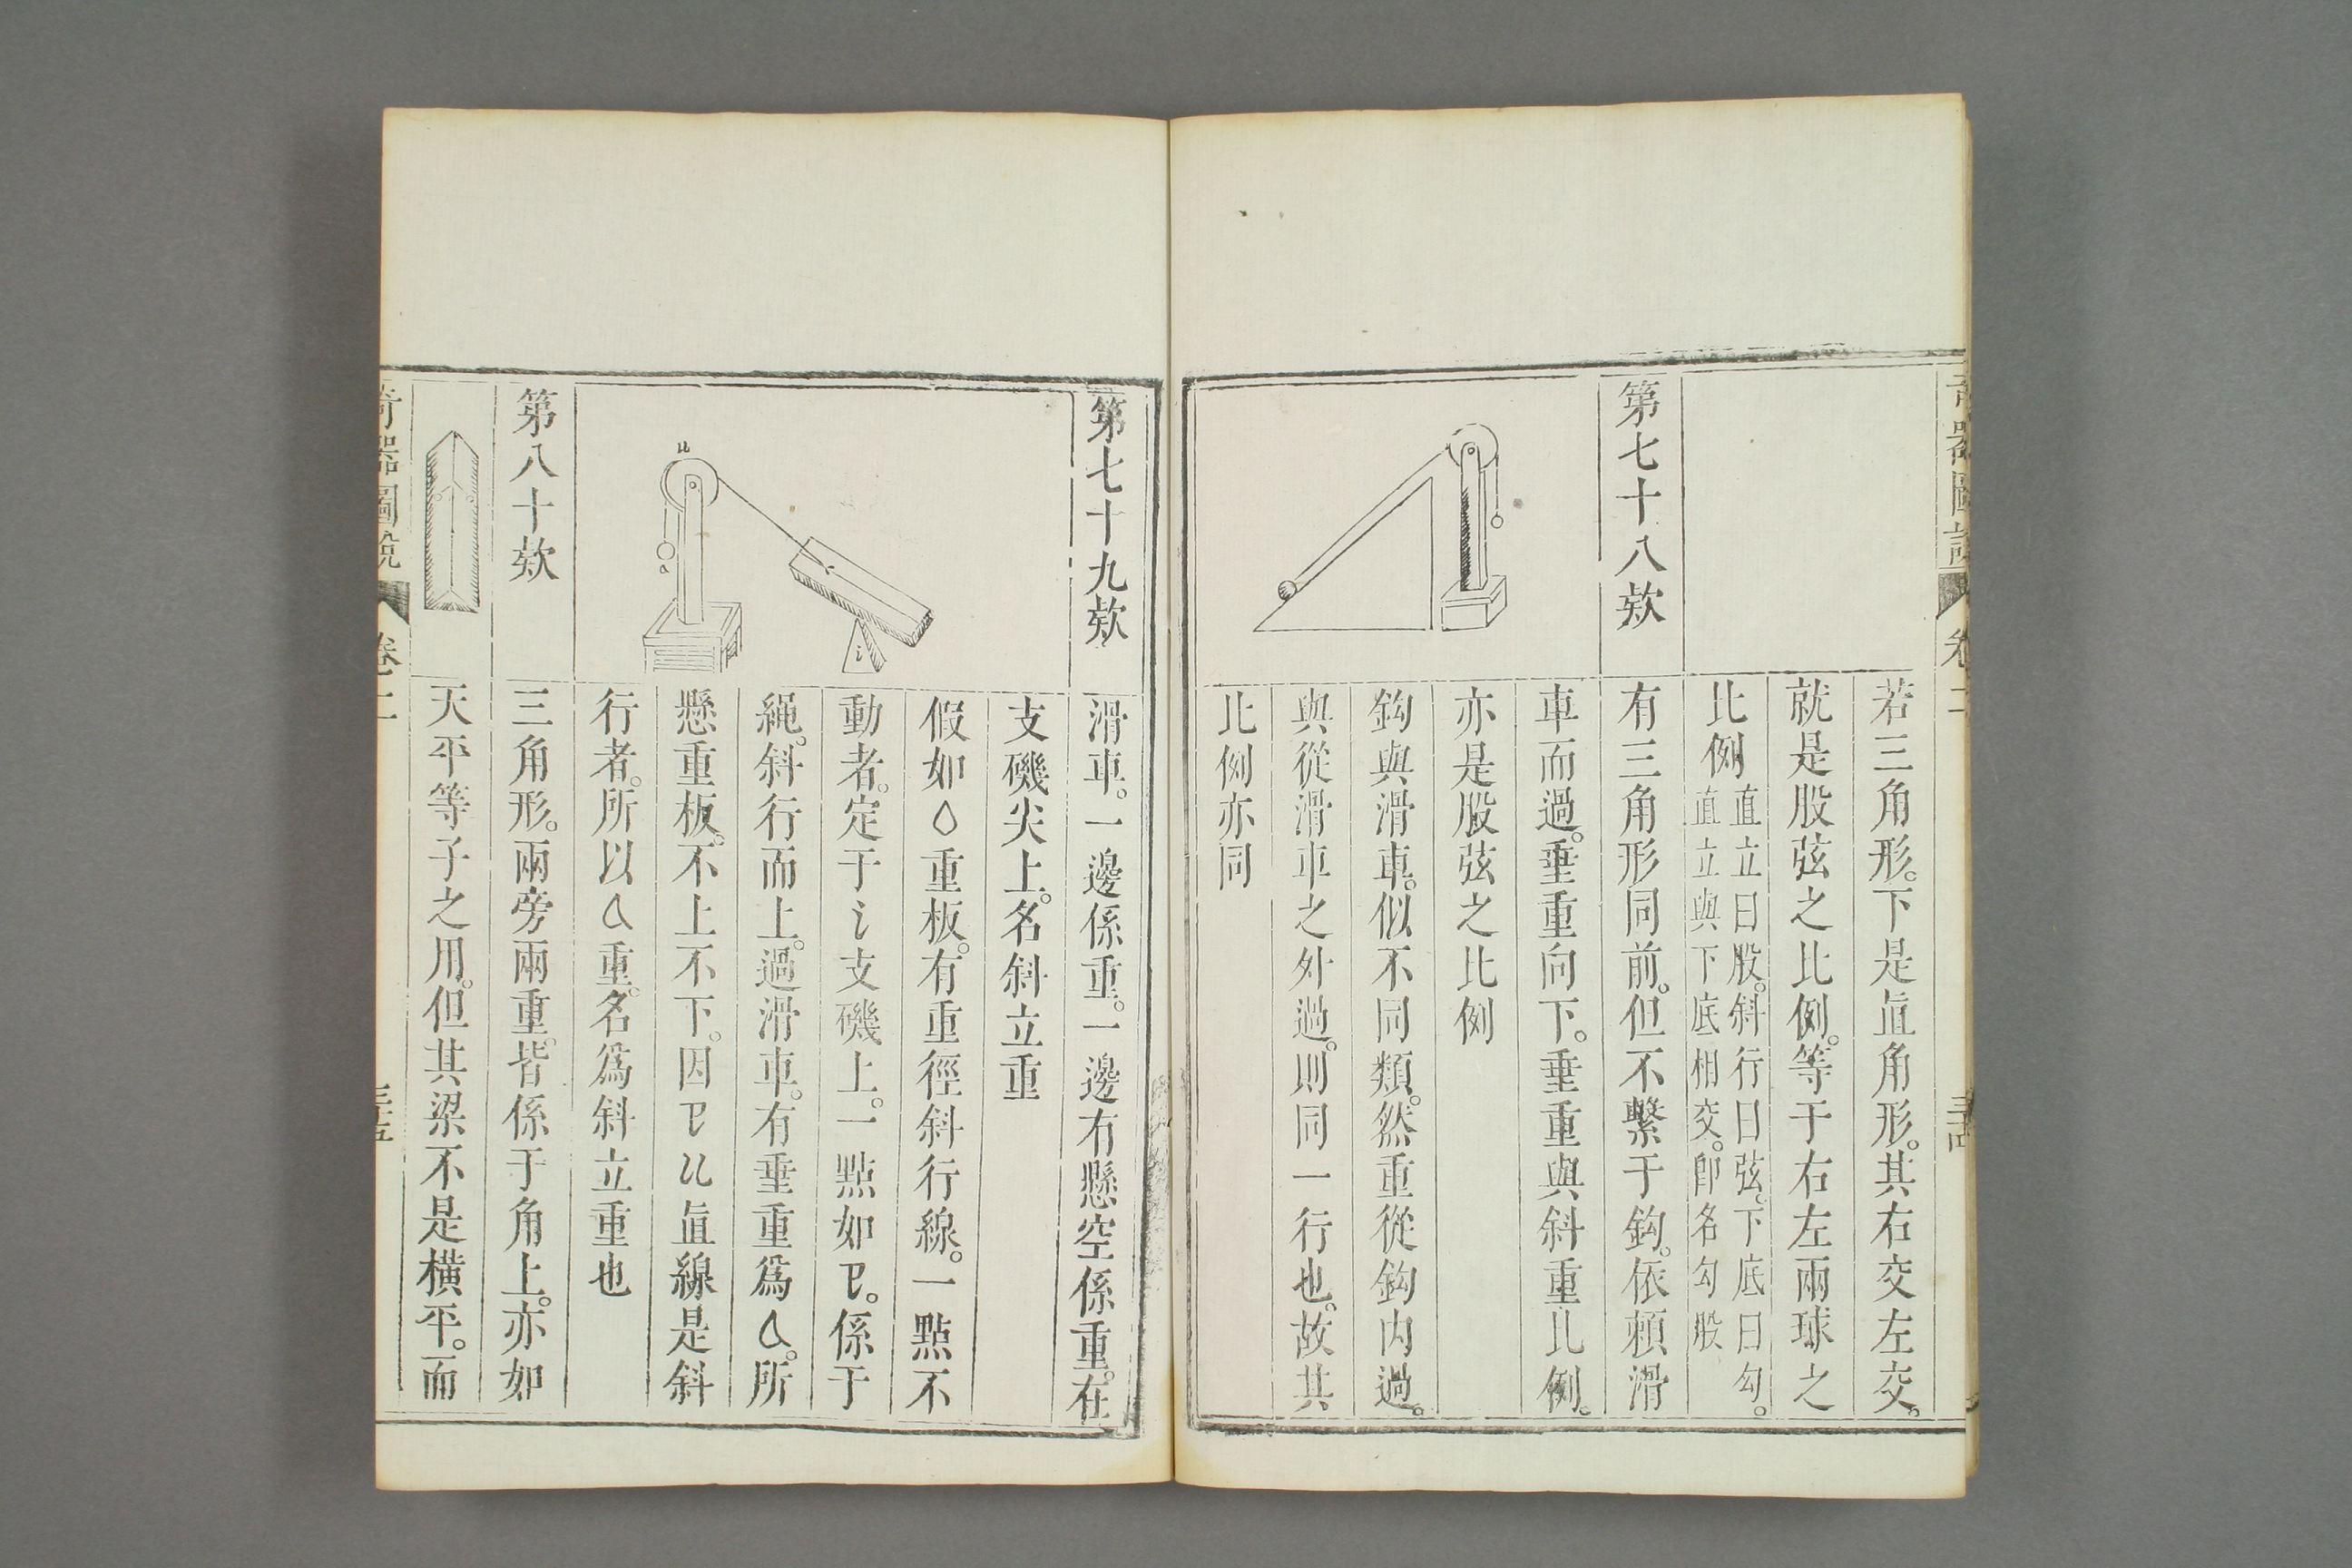 奇器圖說
卷二
三十四
若三角形。下是直角形。其右交左交。
就是股弦之比例。等于右左兩球之
比例
直立曰股。斜行曰弦。下底曰勾。
直立與下底相交。卽名勾股
第七十八欵
有三角形同前。但不繫于鈎。依賴滑
車而過。垂重向下。垂重與斜重比例。
亦是股弦之比例
鈎與滑車。似不同類。然重從鈎內過。
與從滑車之外過。則同一行也。故其
比例亦同
第七十九欵
滑車。一邊係重。一邊有懸空係重。在
支磯尖上。名斜立重
假如重板。有重徑斜行線。一點不
動者。定于支磯上。一點如。係于
繩。斜行而上。過滑車。有垂重爲。所
懸重板。不上不下。因直線是斜
行者。所以重。名爲斜立重也
第八十欵
三角形。兩旁兩重。皆係于角上。亦如
天平等子之用。但其梁不是橫平。而
奇器圖說
卷二
三十五